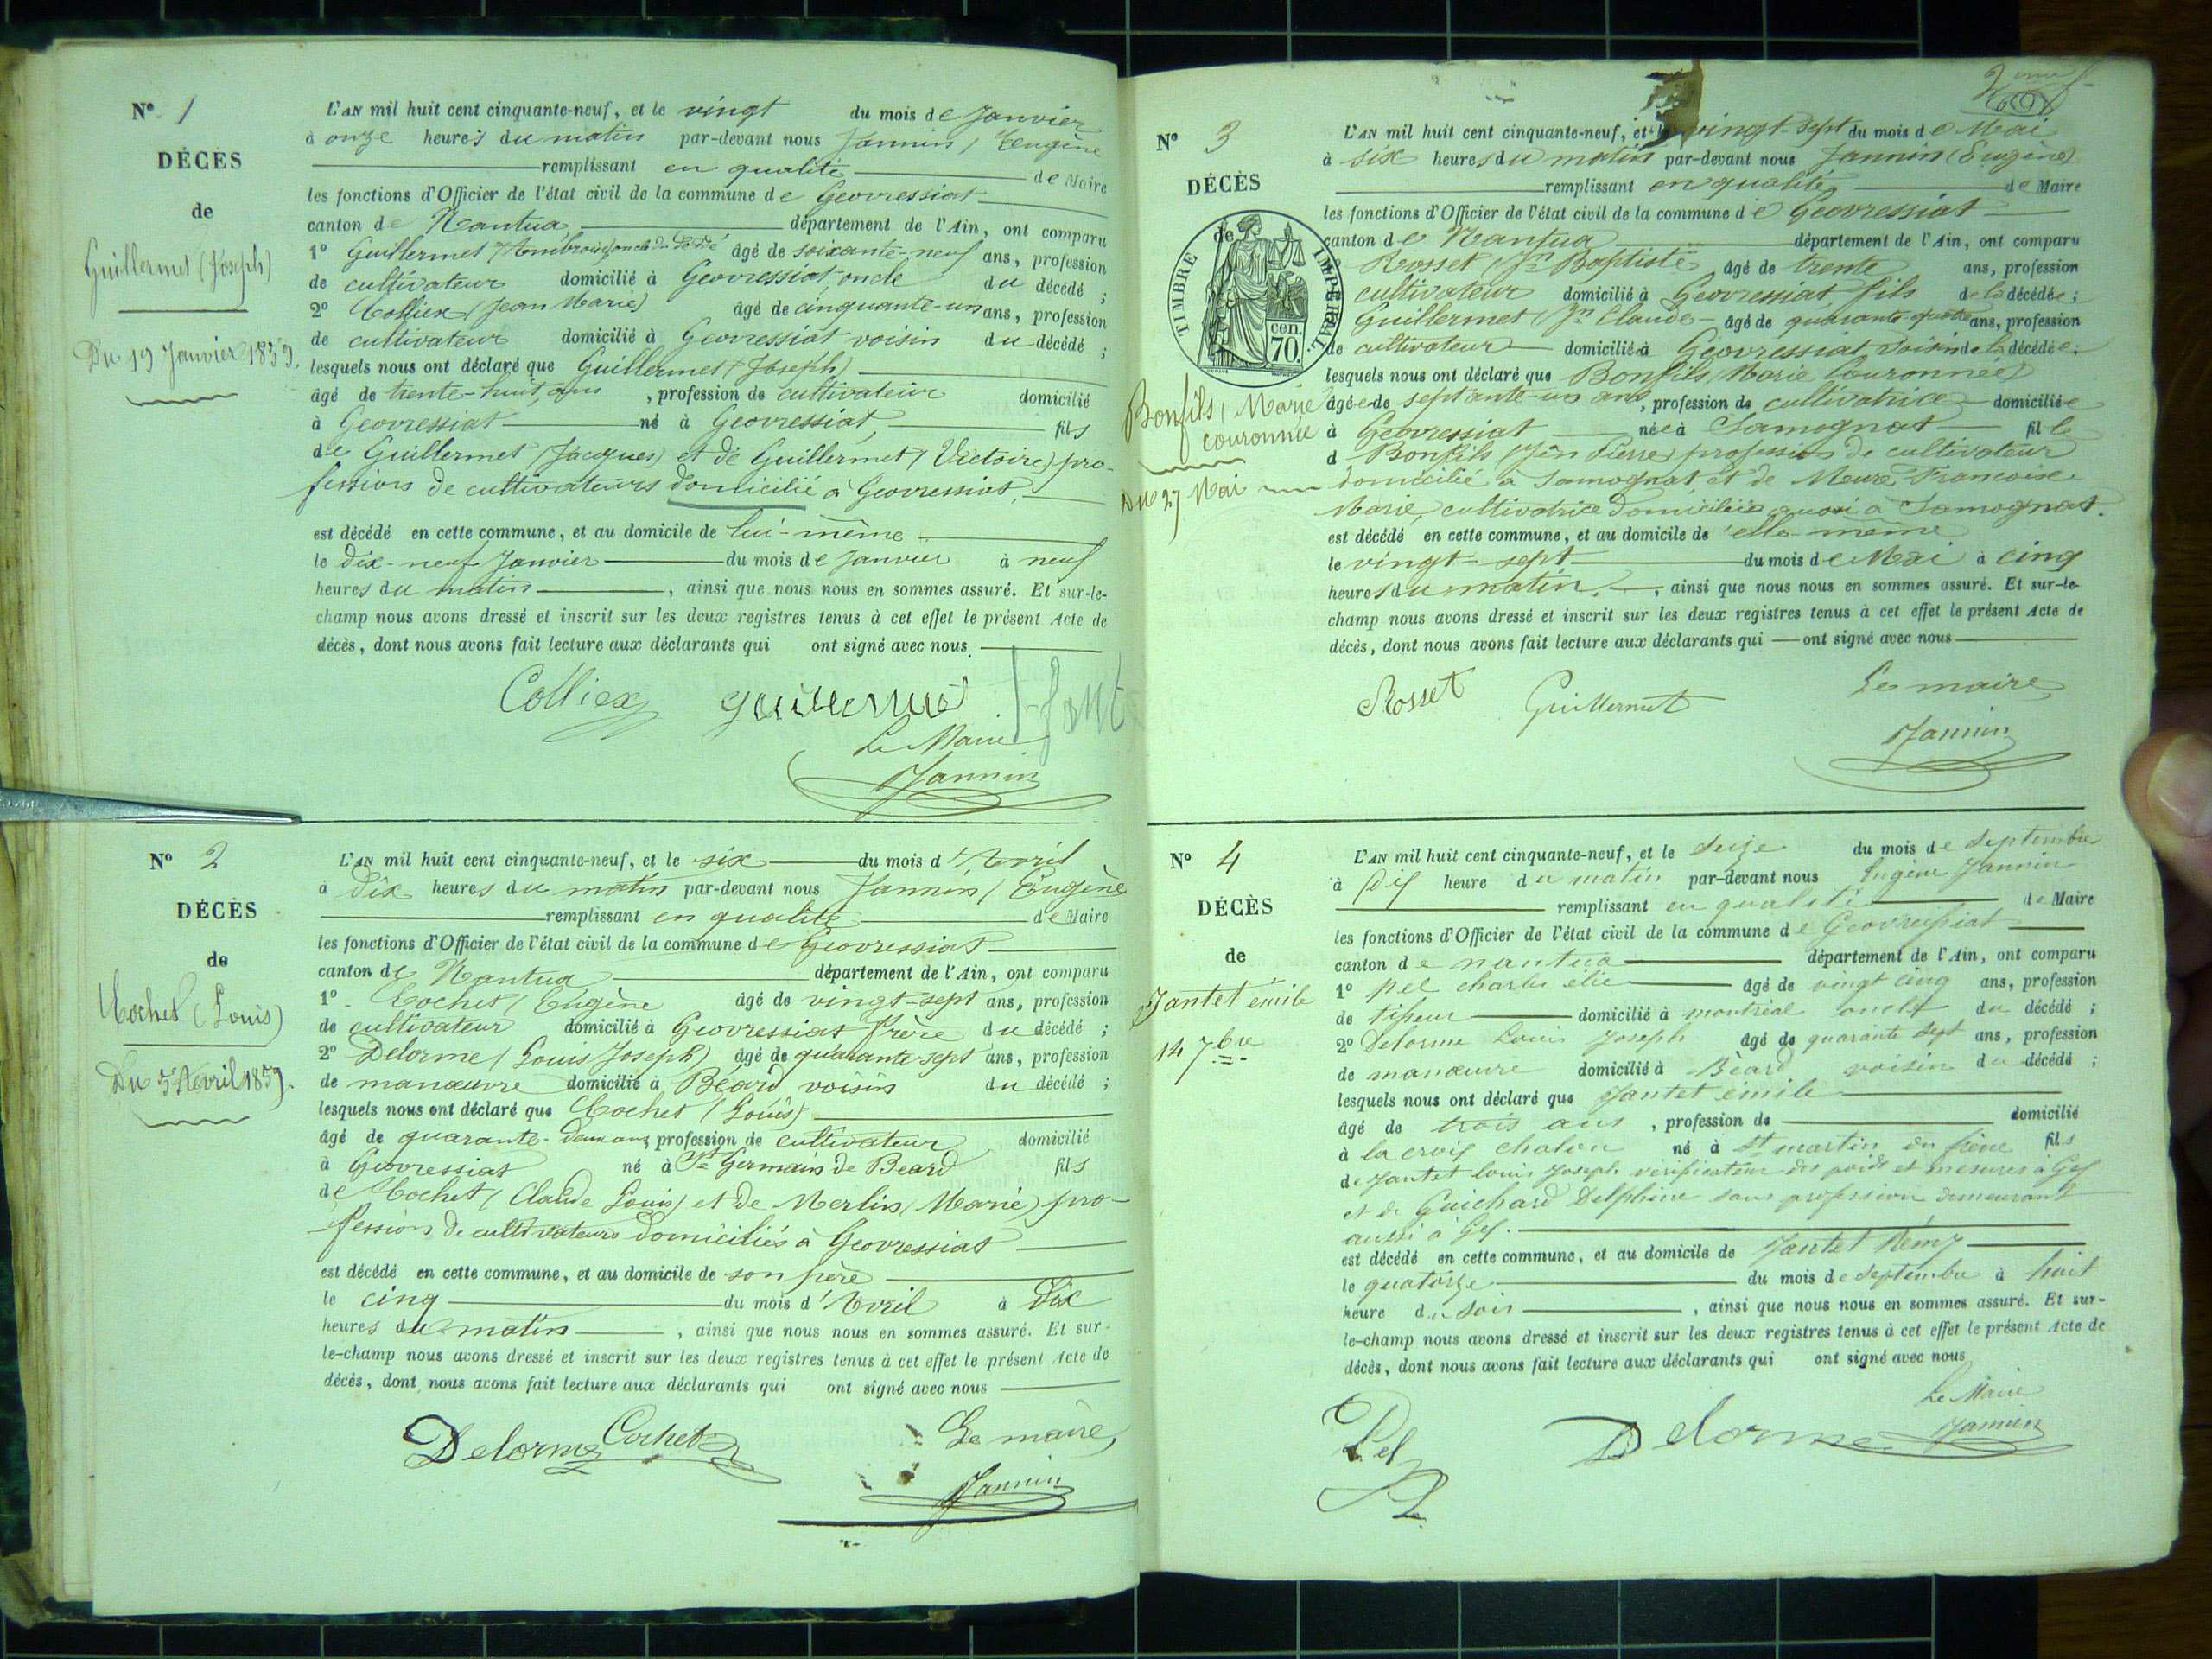 N° 1
DÉCÈS
de
Guillermet (Joseph)
Du 19 Janvier 1859.
L'AN mil huit cent cinquante-neuf, et le vingt du mois de Janvier
à onze heures du matin par-devant nous Jannin (Eugène
remplissant en qualité de Maire
les fonctions d'Officier de l'état civil de la commune de Geovressiat
canton de Nantua département de l'Ain, ont comparu
1° Guillermet (Ambroise) oncle du âgé de soixante-neuf ans, profession
de cultivateur domicilié à Geovressiat, oncle du décédé ;
2° Colliex (Jean Marie) âgé de cinquante-un ans, profession
de cultivateur domicilié à Geovressiat voisin du décédé ;
lesquels nous ont déclaré que Guillermet (Joseph)
âgé de trente-huit ans, profession de cultivateur domicilié
à Geovressiat né à Geovressiat, fils
de Guillermet (Jacques) et de Guillermet (Victoire) pro-
fession de cultivateurs domicilié à Geovressiat,
est décédé en cette commune, et au domicile de lui-même
le dix-neuf Janvier du mois de Janvier à neuf
heures du matin, ainsi que nous nous en sommes assuré. Et sur-le-
champ nous avons dressé et inscrit sur les deux registres tenus à cet effet le présent Acte de
décès, dont nous avons fait lecture aux déclarants qui ont signé avec nous.
Colliex Guillermet
Le Maire
Jannin
N° 2
DÉCÈS
de
Cochet (Louis)
Du 5 Avril 1859.
L'AN mil huit cent cinquante-neuf, et le six du mois d'Avril
à dix heures du matin par-devant nous Jannin (Eugène
remplissant en qualité de Maire
les fonctions d'Officier de l'état civil de la commune de Geovressiat
canton de Nantua département de l'Ain, ont comparu
1° Cochet (Eugène âgé de vingt-sept ans, profession
de cultivateur domicilié à Geovressiat frère du décédé ;
2° Delorme (Louis Joseph) âgé de quarante-sept ans, profession
de manœuvre domicilié à Béard voisin du décédé ;
lesquels nous ont déclaré que Cochet (Louis)
âgé de quarante-deux ans profession de cultivateur domicilié
à Geovressiat né à St Germain de Beard fils
de Cochet (Claude Louis) et de Merlin (Marie) pro-
fession de cultivateurs domiciliés à Geovressiat
est décédé en cette commune, et au domicile de son père
le cinq du mois d'Avril à dix
heures du matin, ainsi que nous nous en sommes assuré. Et sur-
le-champ nous avons dressé et inscrit sur les deux registres tenus à cet effet le présent Acte de
décès, dont nous avons fait lecture aux déclarants qui ont signé avec nous
Delorme Cochet Le maire,
Jannin
N° 3
DÉCÈS
de
TIMBRE IMPÉRIAL
70 cen.
Bonfils (Marie
couronnée
Du 27 Mai
L'AN mil huit cent cinquante-neuf, et le vingt-sept du mois de Mai
à six heures du matin par-devant nous Jannin (Eugène)
remplissant en qualité de Maire
les fonctions d'Officier de l'état civil de la commune de Geovressiat
canton de Nantua département de l'Ain, ont comparu
Rosset (Jn Baptiste âgé de trente ans, profession
cultivateur domicilié à Geovressiat, fils de la décédée ;
Guillermet (Jn Claude âgé de quarante-quatre ans, profession
de cultivateur domicilié à Geovressiat voisin de la décédée ;
lesquels nous ont déclaré que Bonfils (Marie Couronnée)
âgée de septante-un ans, profession de cultivatrice domiciliée
à Geovressiat née à Samognat fille
d Bonfils (Jn Pierre) profession de cultivateur
domicilié à Samognat et de Meure Françoise
Marie, cultivatrice domiciliée aussi à Samognat.
est décédé en cette commune, et au domicile de elle-même
le vingt-sept du mois de Mai à cinq
heures du matin, ainsi que nous nous en sommes assuré. Et sur-le-
champ nous avons dressé et inscrit sur les deux registres tenus à cet effet le présent Acte de
décès, dont nous avons fait lecture aux déclarants qui ont signé avec nous
Rosset Guillermet Le maire
Jannin
N° 4
DÉCÈS
de
Jantet émile
14 7bre
L'AN mil huit cent cinquante-neuf, et le seize du mois de septembre
à dix heure du matin par-devant nous Eugène Jannin
remplissant en qualité de Maire
les fonctions d'Officier de l'état civil de la commune de Geovressiat
canton de nantua département de l'Ain, ont comparu
1° Pel charles élie âgé de vingt cinq ans, profession
de tisseur domicilié à montréal oncle du décédé ;
2° Delorme Louis Joseph âgé de quarante sept ans, profession
de manœuvre domicilié à Béard voisin du décédé ;
lesquels nous ont déclaré que Jantet émile
âgé de trois ans, profession de domicilié
à la croix chalon né à St martin du frêne fils
de Jantet louis Joseph vérificateur des poids et mesures à Gex
et de Guichard Delphine sans profession demeurant
aussi à Gex.
est décédé en cette commune, et au domicile de Jantet Rémy
le quatorze du mois de septembre à huit
heure du soir, ainsi que nous nous en sommes assuré. Et sur-
le-champ nous avons dressé et inscrit sur les deux registres tenus à cet effet le présent Acte de
décès, dont nous avons fait lecture aux déclarants qui ont signé avec nous
Pel Delorme Le Maire
Jannin